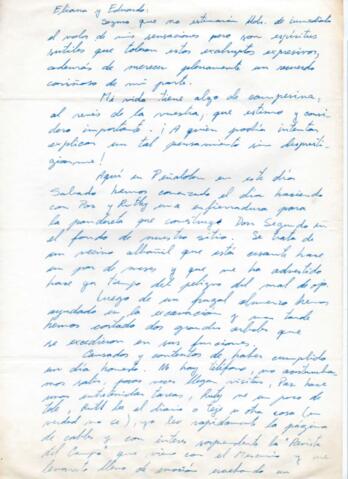 Eliana y Eduardo:
Seguro que no estimarán Uds. de inmediato
el valor de mis sensaciones pero son espíritus
sutiles que toleran estos exabruptos expresivos,
además de merecer plenamente un recuerdo
cariñoso de mi parte.
Mi vida tiene algo de campesina,
al revés de la vuestra, que estimo y consi-
dero importante. ¡A quien podía intentar
explicar un tal pensamiento sin despresti-
giarme!
Aquí en Peñalolén en este día
Sábado hemos comenzado el día haciendo
con Paz y Ruthy una enfierradura para
la pandereta que construye Don Segundo en
el fondo de nuestro sitio. Se trata de
un vecino albañil que está cesante hace
un par de meses y que me ha advertido
hace ya tiempo del peligro del mal de ojo.
Luego de un frugal almuerzo hemos
ayudado en la excavación y mas tarde
hemos cortado dos grandes árboles que
se excedieron en sus funciones.
Cansados y contentos de haber cumplido
un día honrado. No hay teléfono, no acostumbra-
mos salir, pocas veces llegan visitas, Paz hace
unas entretenidas tareas, Ruthy ve un poco de
tele, Ruth lee el diario o teje u otra cosa (en
verdad no se), yo leo rápidamente la página
de cables y con interés sorprendente la "Revista
del Campo" que viene con el Mercurio y me
levanto lleno de emoción escuchando un